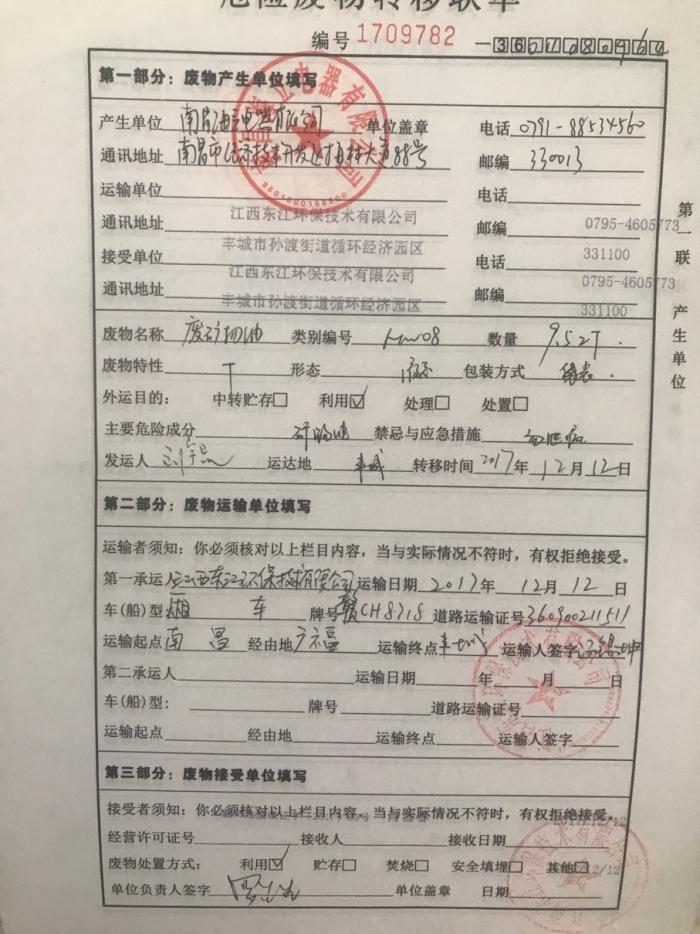 危险废物转移联单
编号 1709782
第一部分：废物产生单位填写
产生单位 南昌海立电器有限公司 单位盖章 电话 0791-88534560
通讯地址 南昌市经济技术开发区梅林大道88号 邮编 330013
运输单位 江西东江环保技术有限公司 电话 0795-4605773
通讯地址 丰城市孙渡街道循环经济园区 邮编 331100
接受单位 江西东江环保技术有限公司 电话 0795-4605773
通讯地址 丰城市孙渡街道循环经济园区 邮编 331100
第一联 产生单位
废物名称 废矿物油 类别编号 HW08 数量 9.52T
废物特性 T 形态 液态 包装方式
外运目的： 中转贮存□ 利用☑ 处理□ 处置□
主要危险成分 矿物油 禁忌与应急措施
发运人 运达地 丰城 转移时间 2017年12月12日
第二部分：废物运输单位填写
运输者须知：你必须核对以上栏目内容，当与实际情况不符时，有权拒绝接受。
第一承运人 江西东江环保技术有限公司 运输日期 2017年12月12日
车(船)型 厢车 牌号 赣CH8718 道路运输证号 360900211511
运输起点 南昌 经由地 广福 运输终点 丰城 运输人签字
第二承运人 运输日期 年 月 日
车(船)型： 牌号 道路运输证号
运输起点 经由地 运输终点 运输人签字
第三部分：废物接受单位填写
接受者须知：你必须核对以上栏目内容，当与实际情况不符时，有权拒绝接受。
经营许可证号 接收人 接收日期
废物处置方式： 利用☑ 贮存□ 焚烧□ 安全填埋□ 其他□
单位负责人签字 单位盖章 日期